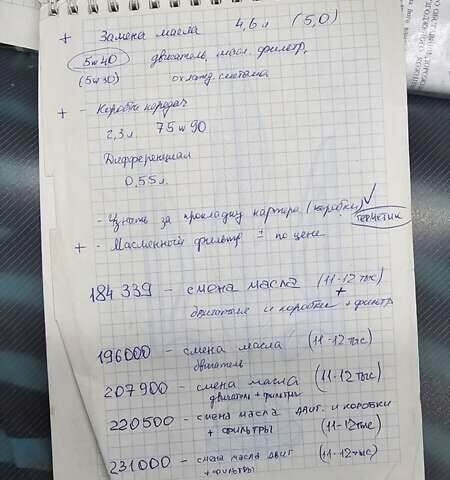 + Замена масла 4,6 л (5,0)
5w40 двигатель, масл. фильтр,
(5w30) охлажд. система
+ - Коробка передач
2,3 л. 75w90
Дифференциал
0,55 л.
- Узнать за прокладку картера (коробки) ✓
герметик
+ - Масленный фильтр ± по цене
184 339 - смена масла (11-12 тыс)
двигателя и коробки + фильтр
196000 - смена масла (11-12 тыс)
двигатель
207900 - смена масла (11-12 тыс)
двигатель + фильтры
220500 - смена масла двиг. и коробки
+ фильтры (11-12 тыс)
231000 - смена масла двиг (11-12 тыс)
+ фильтры